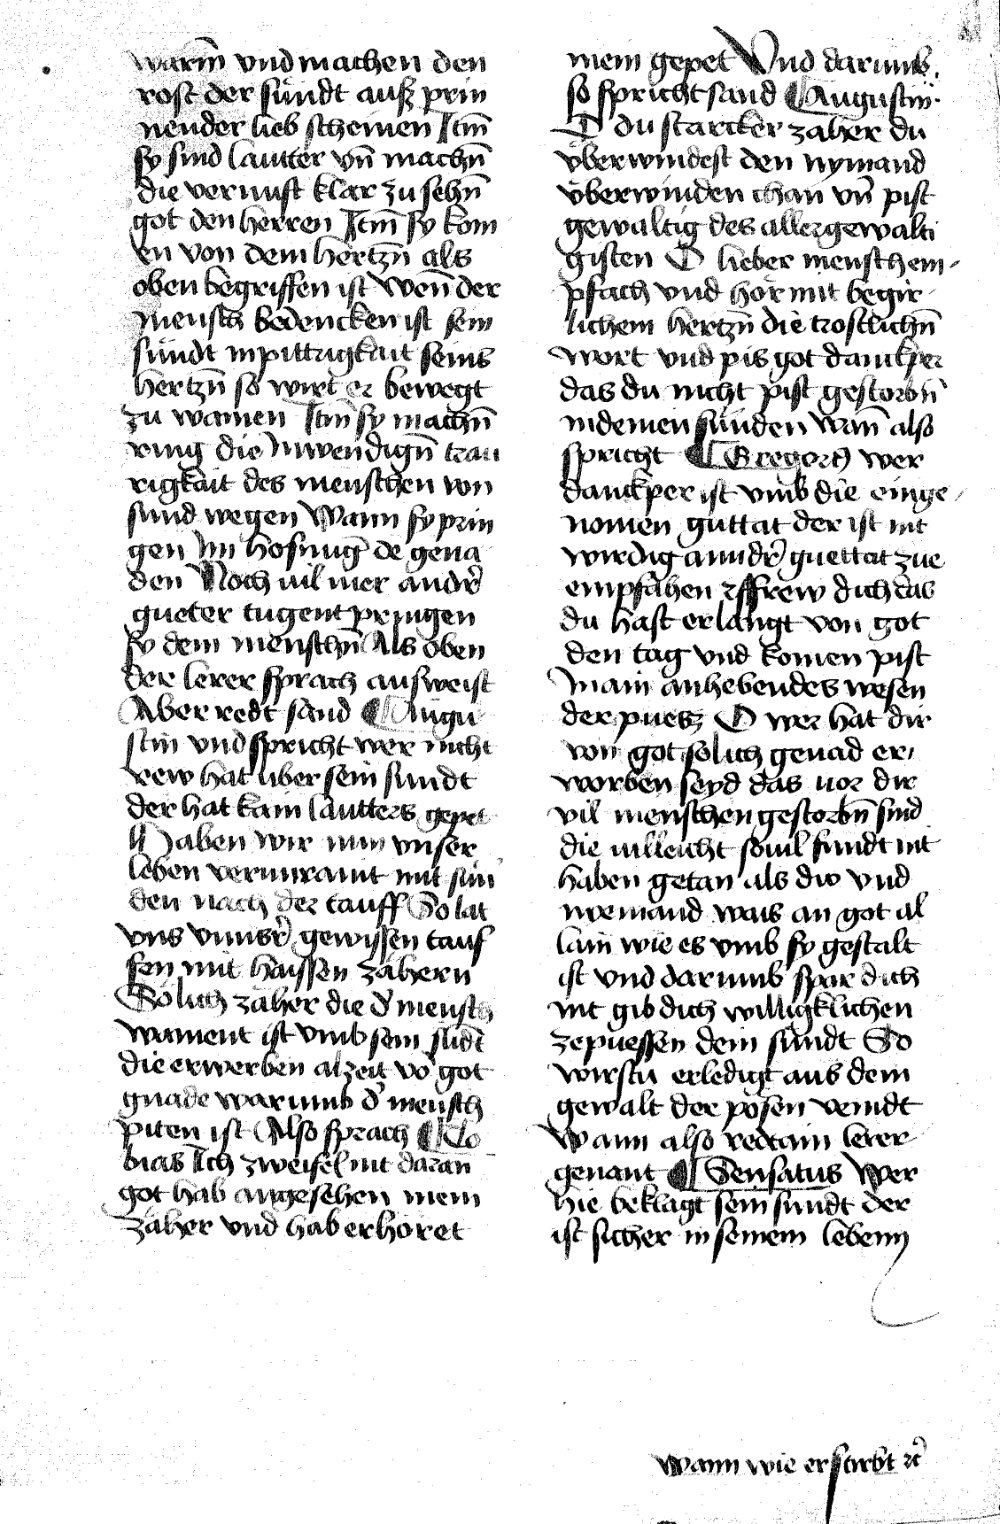 warm̄ vnd machen den
rost der sündt ausz prin
nender lieb scheinen Itm̄
sy sind lautter vn̄ machn̄
die vernuft klar zu sehn̄
got den herren Itm̄ sy kom
en von dem hertzn̄ als
oben begriffen ist Wen̄ der
mensch bedencken ist sein
sündt in pittrigkait seins
hertzn̄ so wirt er bewegt
zu wainen Itm̄ sy machn̄
ring die Inwendign̄ trau
rigkait des menschen von
sund wegen Wann sy prin
gen Im hofnūg de gena
den Noch uil mer andr̄
gueter tugent pringen
sy dem menschn̄ Als oben
der lerer sprach ausweist
Aber redt sand ¶ Augu
stin vnd spricht wer nicht
rew hat über sein sundt
der hat kain lautters gepet
Haben wir nun vnser
leben verunraint mit sün
den nach der tauff So lat
vns vnnsr̄ gewissen tauf
fen mit haissen zähern
Sölich zäher die d' mensch
wainent ist vmb sein sūdt
die erwerben alzeit vō got
gnade warumb d' mensch
piten ist Also sprach ¶ To
bias Ich zweifel nit daran
got hab angesehen mein
zäher vnd hab erhöret
mein gepet Vnd darumb
so spricht sand ¶ Augustin
O du starcker zäher du
überwindest den nymand
überwinden chan vn̄ pist
gewaltig des allergewalti
gisten O lieber mensch em-
pfach vnd hör mit begir
lichem hertzn̄ die trostlichn̄
wort vnd pis got danckper
das du nicht pist gestorbn̄
in deinen sünden Wan̄ also
spricht ¶ Gregorӡ wer
danckper ist vmb die einge
nomen guttat der ist nit
wirdig anndr̄ guettat zue
empfahen erffrew dich das
du hast erlangt von got
den tag vnd komen pist
in ain anhebendes wesen
der puesz O wer hat dir
von got solich genad er
worben seyd das uor dir
vil menschen gestorbn̄ sind
die uilleicht souil sundt nit
haben getan als dw vnd
niemand wais an got al
lain wie es vmb sy gestalt
ist vnd darumb spar dich
nit gib dich willigklichen
ze puessen dein sündt So
wirstu erledigt aus dem
gewalt der pösen veindt
Wann also redt ain lerer
genant ¶ Sensatus Wer
hie beklagt sein sundt der
ist sicher in seinem leben
wann wie er stirbt ꝛc̄